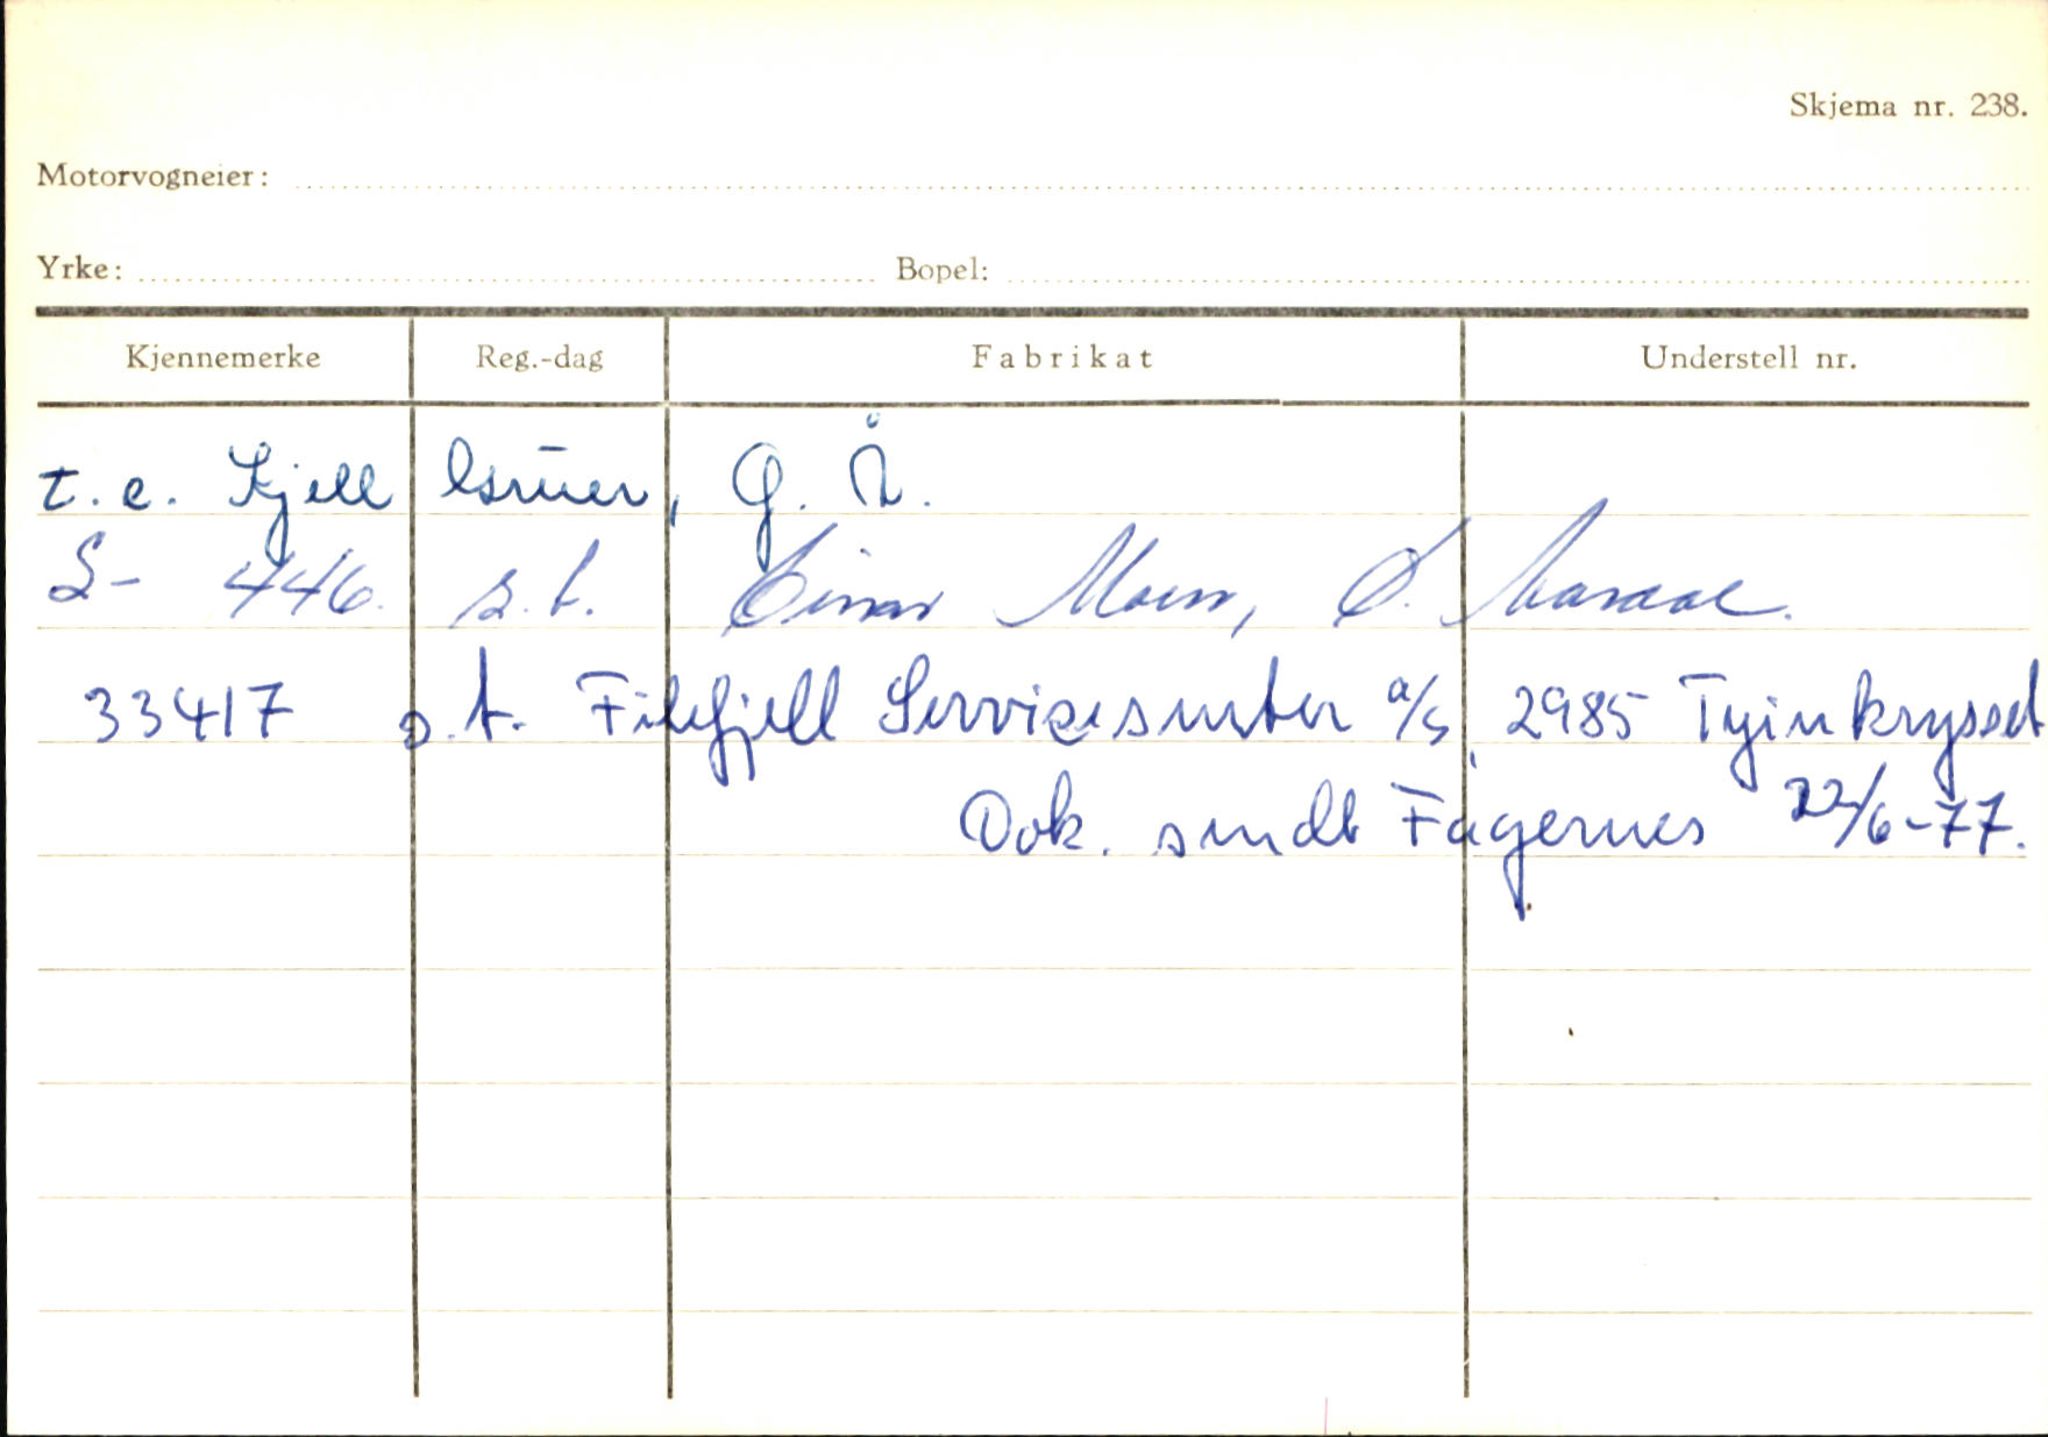 Skjema nr. 238.
Motorvogneier:
Yrke: Bopel:
Kjennemerke Reg.-dag Fabrikat Understell nr.
t.e. Kjell , G. Å.
S- 446. s.t. Einar Moen, Ø.
33417 s.t. Filefjell Servicesenter a/s, 2985 Tyinkrysset
Dok. sendt Fagernes 22/6-77.